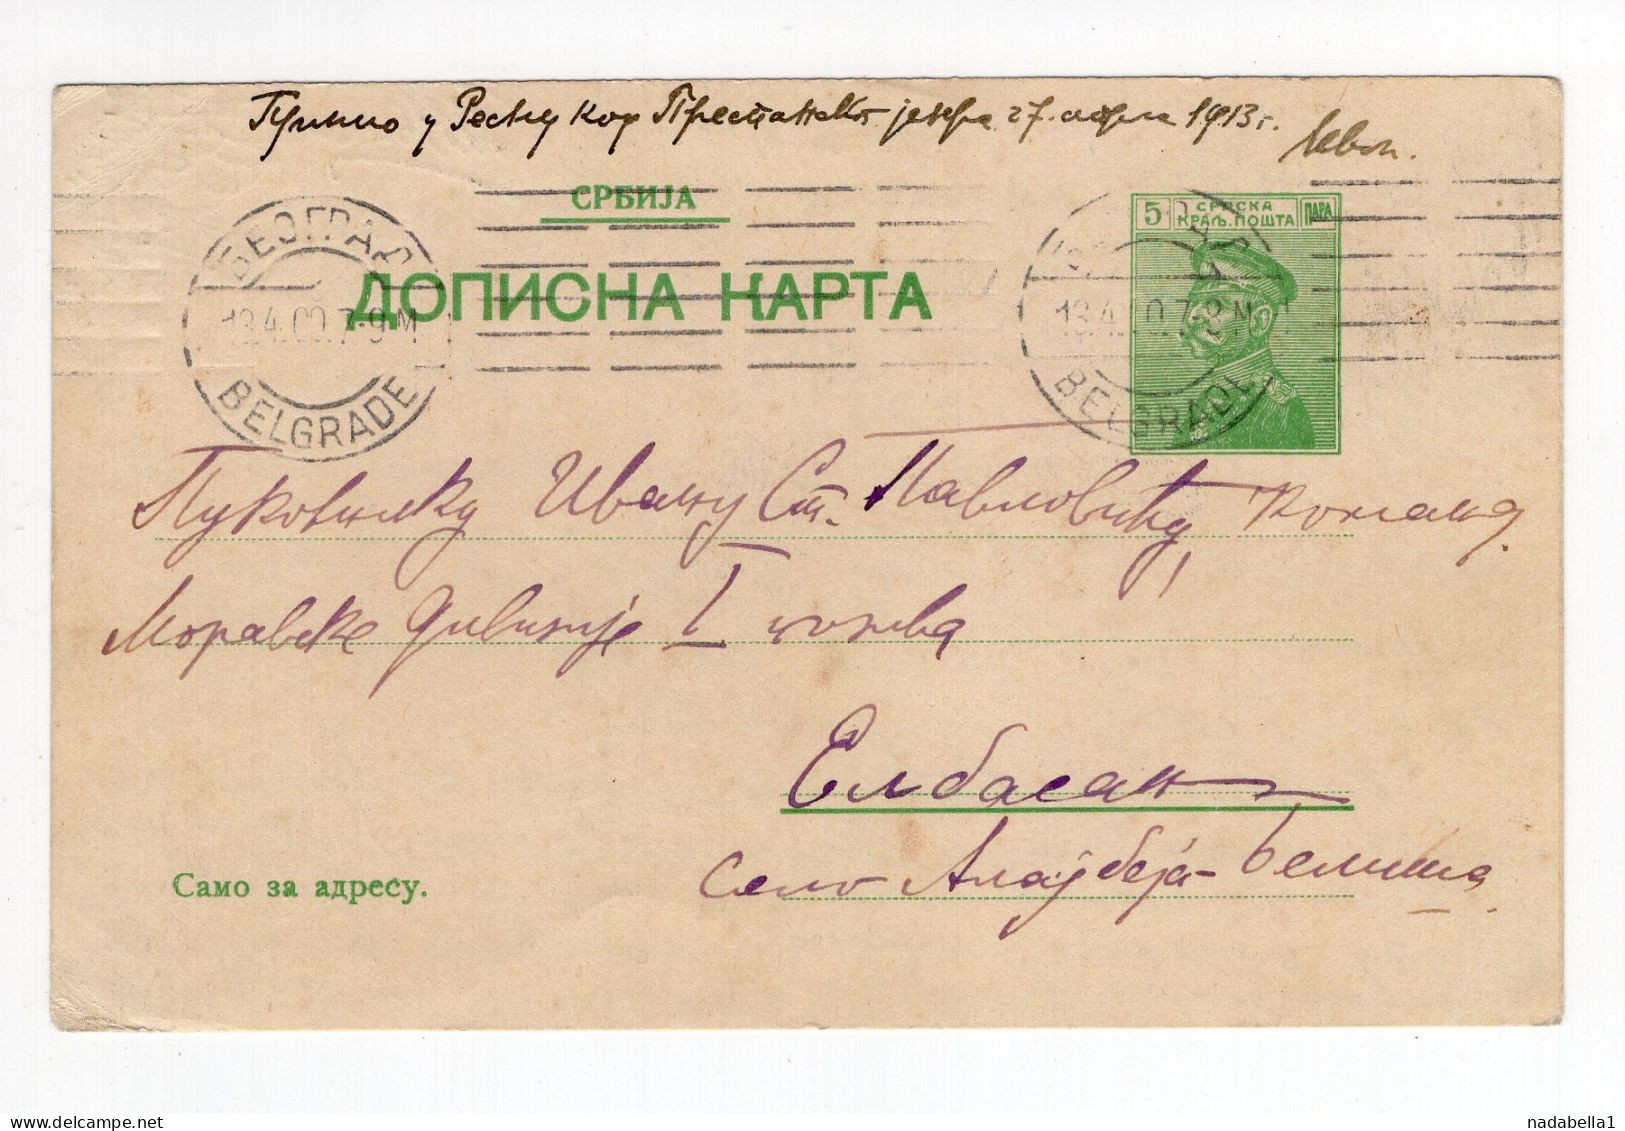 Примио у Ресну код Преспанског језера 27. априла 1913 г.
СРБИЈА
ДОПИСНА КАРТА
5 СРПСКА КРАЉ. ПОШТА ПАРА
БЕОГРАД
13.4.00.7-9.М
BELGRADE
БЕОГРАД
13.4.00.7-9.М
BELGRADE
Пуковнику Ивану Ст. Павловићу, Команд.
Моравске дивизије I позива
Елбасан
Село Алајбеја-
Само за адресу.
nadabella1